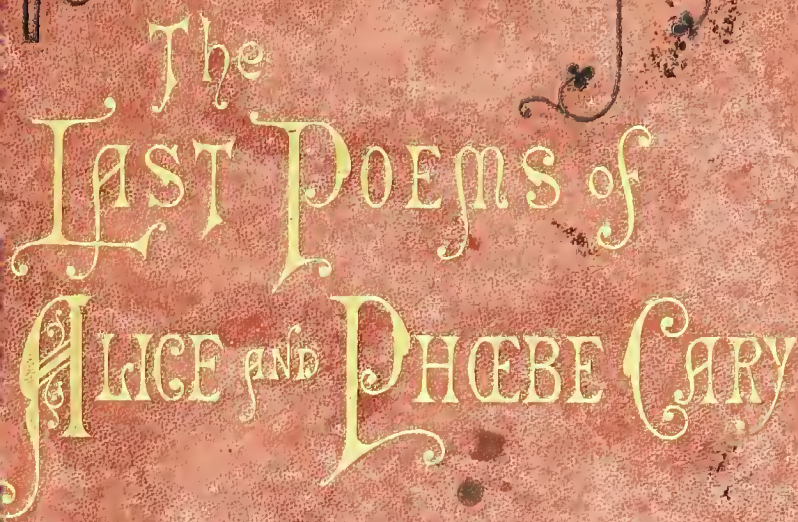 The
Last Poems of
Alice and Phœbe Cary